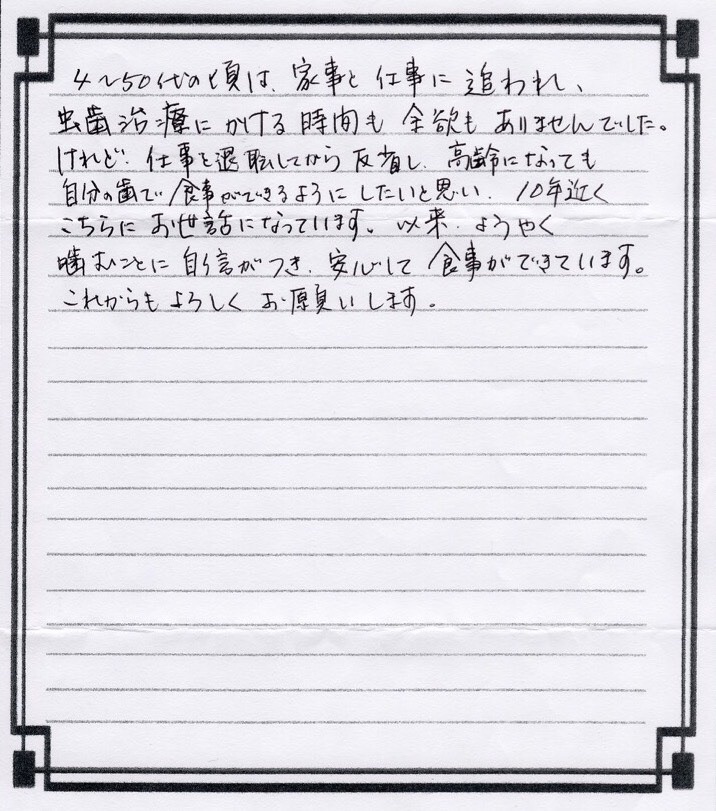 4〜50代の頃は、家事と仕事に追われ、
虫歯治療にかける時間も余欲もありませんでした。
けれど、仕事を退転してから反省し、高齢になっても
自分の歯で食事ができるようにしたいと思い、10年近く
こちらにお世話になっています。以来、ようやく
噛むことに自信がつき、安心して食事ができています。
これからもよろしくお願いします。